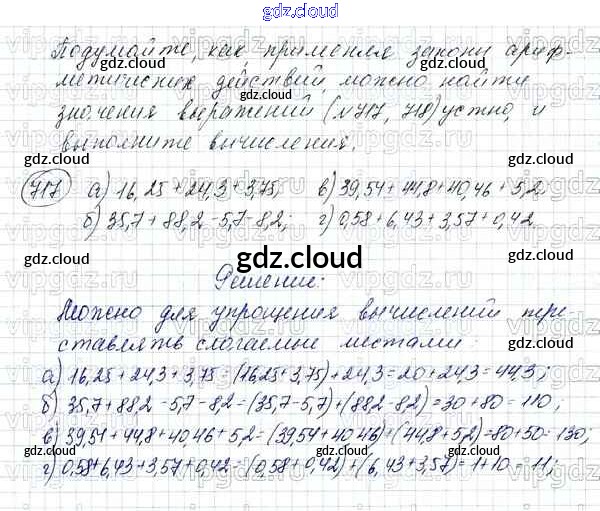 gdz.cloud
Подумайте, как, применяя законы ариф-
метических действий, можно найти
значения выражений (№717, 718) устно, и
выполните вычисления.
717 а) 16,25+24,3+3,75; в) 39,54+44,8+40,46+5,2
б) 35,7+88,2-5,7-8,2; г) 0,58+6,43+3,57+0,42
gdz.cloud
Решение:
Можно для упрощения вычислений пере-
ставлять слагаемые местами:
а) 16,25+24,3+3,75=(16,25+3,75)+24,3=20+24,3=44,3;
б) 35,7+88,2-5,7-8,2=(35,7-5,7)+(88,2-8,2)=30+80=110;
в) 39,54+44,8+40,46+5,2=(39,54+40,46)+(44,8+5,2)=80+50=130;
г) 0,58+6,43+3,57+0,42=(0,58+0,42)+(6,43+3,57)=1+10=11;
gdz.cloud